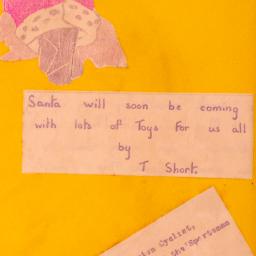 Santa will soon be coming
with lots of Toys for us all
by
T Short.
Cyclist,
the "Sportsman